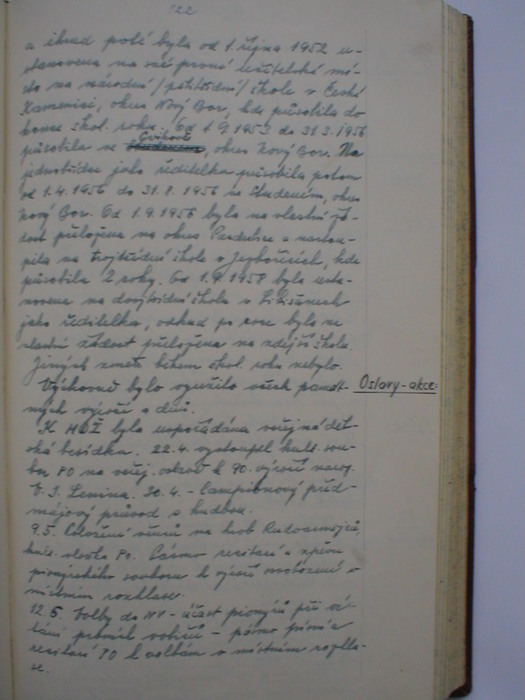 122
a ihned poté byla od 1. října 1952 u-
stanovena na své první učitelské mí-
sto na národní /pětitřídní/ škole v České
Kamenici, okres Nový Bor, kde působila do
konce škol. roku. Od 1.9.1953 do 31.3.1956
působila ve Cvikově, okres Nový Bor. Na
jednotřídce jako ředitelka působila potom
od 1.4.1956 do 31.8.1956 ve Studeném, okres
Nový Bor. Od 1.9.1956 byla na vlastní žá-
dost přeložena na okres Pardubice a nastou-
pila na trojtřídní škole v Jezbořicích, kde
působila 2 roky. Od 1.9.1958 byla usta-
novena na dvojtřídní škole v Libišanech
jako ředitelka, odkud po roce byla na
vlastní žádost přeložena na zdejší školu.
Jiných změn během škol. roku nebylo.
Výchovně bylo využito všech památ- Oslavy-akce:
ných výročí a dnů.
K MDŽ byla uspořádána veřejná dět-
ská besídka. 22.4. vystoupil kult. sou-
bor PO na veřej. oslavě k 90. výročí naroz.
V. I. Lenina. 30.4. - lampionový před-
májový průvod s hudbou.
9.5. Položení věnců na hrob Rudoarmějců,
kult. vložka Po. Pásmo recitací a zpěvu
pionýrského souboru k výročí osvobození v
místním rozhlase.
12.6. Volby do NV - účast pionýrů při ví-
tání prvních voličů - pásmo písní a
recitací PO k volbám v místním rozhla-
se.